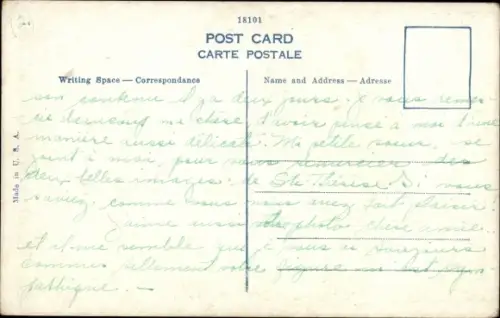 18101
POST CARD
CARTE POSTALE
Writing Space — Correspondance
Name and Address — Adresse
Made in U. S. A.
son contenu il y a deux jours. Je vous remer-
cie ma chère d'avoir pensé à moi d'une
manière aussi délicate. Ma petite soeur, se
joint à moi, pour vous remercier des
deux belles images de Ste Thérèse. Si vous
savez comme vous nous avez fait plaisir.
J'aime aussi photo chère amie
et il me semble que vous
tellement votre figure est sym-
pathique. —